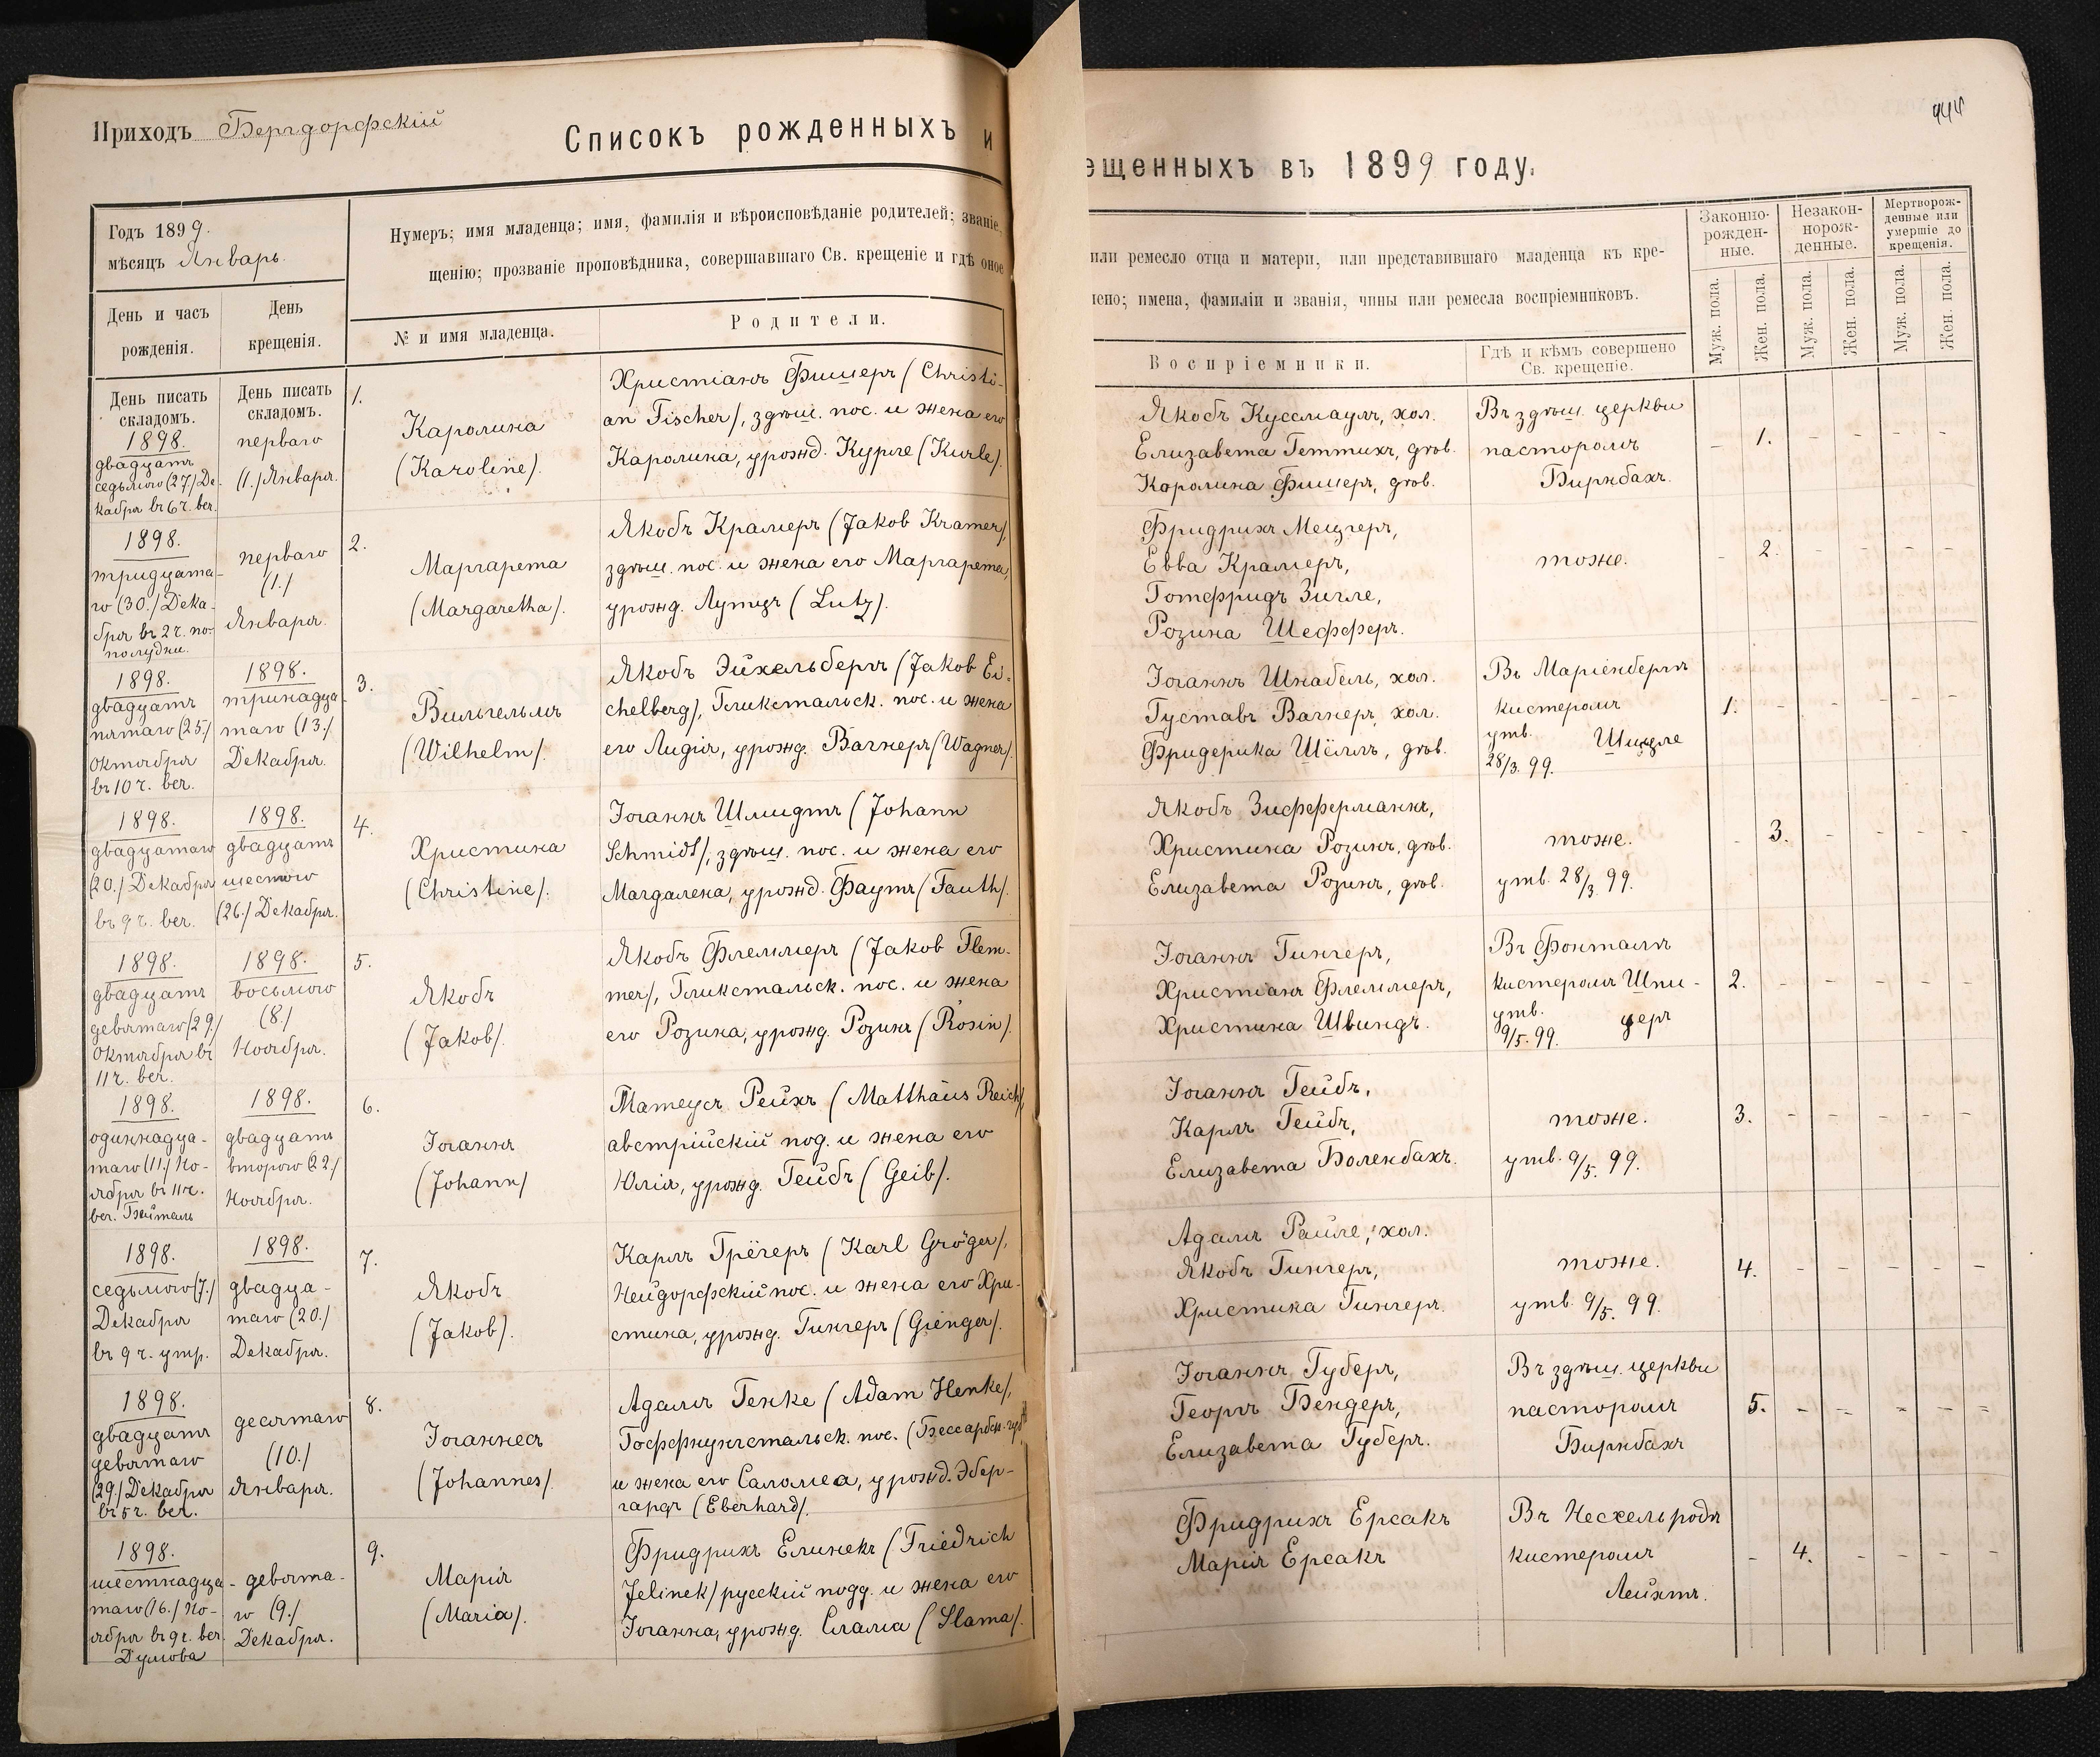 Приходъ Бергдорфскій
Списокъ рожденныхъ и
Годъ 1899.
мѣсяцъ Январь.
Нумеръ; имя младенца; имя, фамилія и вѣроисповѣданіе родителей; званіе,
щенію; прозваніе проповѣдника, совершавшаго Св. крещеніе и гдѣ оное
День и часъ
рожденія.
День
крещенія.
№ и имя младенца.
Родители.
День писать
складомъ.
День писать
складомъ.
1898.
двадцать
седьмого (27.) Де-
кабря въ 6 ч. веч.
перваго
(1.) Января.
1.
Каролина
(Karoline).
Христіанъ Фишеръ (Christi-
an Fischer), здѣш. пос. и жена его
Каролина, урожд. Курле (Kurle).
1898.
тридцата-
го (30.) Дека-
бря въ 2 ч. по-
полудни.
перваго
(1.)
Января.
2.
Маргарета
(Margaretha).
Якобъ Крамеръ (Jakob Kramer),
здѣш. пос. и жена его Маргарета,
урожд. Лутцъ (Lutz).
1898.
двадцать
пятаго (25.)
Октября
въ 10 ч. веч.
1898.
тринадца-
таго (13.)
Декабря.
3.
Вильгельмъ
(Wilhelm).
Якобъ Эйхельбергъ (Jakob Ei-
chelberg), Гликстальск. пос. и жена
его Лидія, урожд. Вагнеръ (Wagner).
1898.
двадцатаго
(20.) Декабря
въ 9 ч. веч.
1898.
двадцать
шестого
(26.) Декабря.
4.
Христина
(Christine).
Іоганнъ Шмидтъ (Johann
Schmidt), здѣш. пос. и жена его
Магдалена, урожд. Фаутъ (Fauth).
1898.
двадцать
девятаго (29.)
Октября въ
11 ч. веч.
1898.
восьмого
(8.)
Ноября.
5.
Якобъ
(Jakob).
Якобъ Флеммеръ (Jakob Flem-
mer), Гликстальск. пос. и жена
его Розина, урожд. Розинъ (Rosin).
1898.
одиннадца-
таго (11.) Но-
ября въ 11 ч.
веч.
1898.
двадцать
второго (22.)
Ноября.
6.
Іоганнъ
(Johann)
Матеусъ Рейхъ (Matthäus Reich),
австрійскій под. и жена его
Юлія, урожд. Гейбъ (Geib).
1898.
седьмого (7.)
Декабря
въ 9 ч. утр.
1898.
двадца-
таго (20.)
Декабря.
7.
Якобъ
(Jakob).
Карлъ Грёгеръ (Karl Gröger),
Нейдорфскій пос. и жена его Хри-
стина, урожд. Гингеръ (Gienger).
1898.
двадцать
девятаго
(29.) Декабря
въ 5 ч. веч.
десятаго
(10.)
Января.
8.
Іоганнесъ
(Johannes).
Адамъ Генке (Adam Henke),
Гоффнунгстальск. пос. (Бессарбск. губ.)
и жена его Саломеа, урожд. Эбер-
гардъ (Eberhard).
1898.
шестнадца-
таго (16.) Но-
ября въ 9 ч. веч.
Думова
девята-
го (9.)
Декабря.
9.
Марія
(Maria).
Фридрихъ Елинекъ (Friedrich
Jelinek) русскій подд. и жена его
Іоганна, урожд. Слама (Slama).
444
ещенныхъ въ 1899 году.
или ремесло отца и матери, или представившаго младенца къ кре-
ено; имена, фамиліи и званія, чины или ремесла воспріемниковъ.
Законно-
рожден-
ные.
Незакон-
норож-
денные.
Мертворож-
денные или
умершіе до
крещенія.
Воспріемники.
Гдѣ и кѣмъ совершено
Св. крещеніе.
Муж. пола.
Жен. пола.
Муж. пола.
Жен. пола.
Муж. пола.
Жен. пола.
Якобъ Куссмаулъ, хол.
Елизавета Геттихъ, дѣв.
Каролина Фишеръ, дѣв.
Въ здѣш. церкви
пасторомъ
Бирнбахъ.
– 1. – – – –
Фридрихъ Мецгеръ,
Евва Крамеръ,
Готфридъ Зигле,
Розина Шефферъ.
тоже.
– 2. – – – –
Іоганнъ Шнабель, хол.
Густавъ Вагнеръ, хол.
Фридерика Шёллъ, дѣв.
Въ Маріенбергѣ
кистеромъ
утв.
28/3. 99.
1. – – – – –
Якобъ Зифферманнъ,
Христина Розинъ, дѣв.
Елизавета Розинъ, дѣв.
тоже.
утв. 28/3. 99.
– 3. – – – –
Іоганнъ Гингеръ,
Христіанъ Флеммеръ,
Христина Швиндъ.
Въ Фонталѣ
кистеромъ Шпи-
утв. церъ
9/5. 99.
2. – – – – –
Іоганнъ Гейбъ,
Карлъ Гейбъ,
Елизавета Боленбахъ.
тоже.
утв. 9/5. 99.
3. – – – – –
Адамъ Райле, хол.
Якобъ Гингеръ,
Христина Гингеръ.
тоже.
утв. 9/5. 99.
4. – – – – –
Іоганнъ Губеръ,
Георгъ Бендеръ,
Елизавета Губеръ.
Въ здѣш. церкви
пасторомъ
Бирнбахъ
5. – – – – –
Фридрихъ Ерсакъ
Марія Ерсакъ
Въ Нессельродѣ
кистеромъ
Лейхтъ.
– 4. – – – –